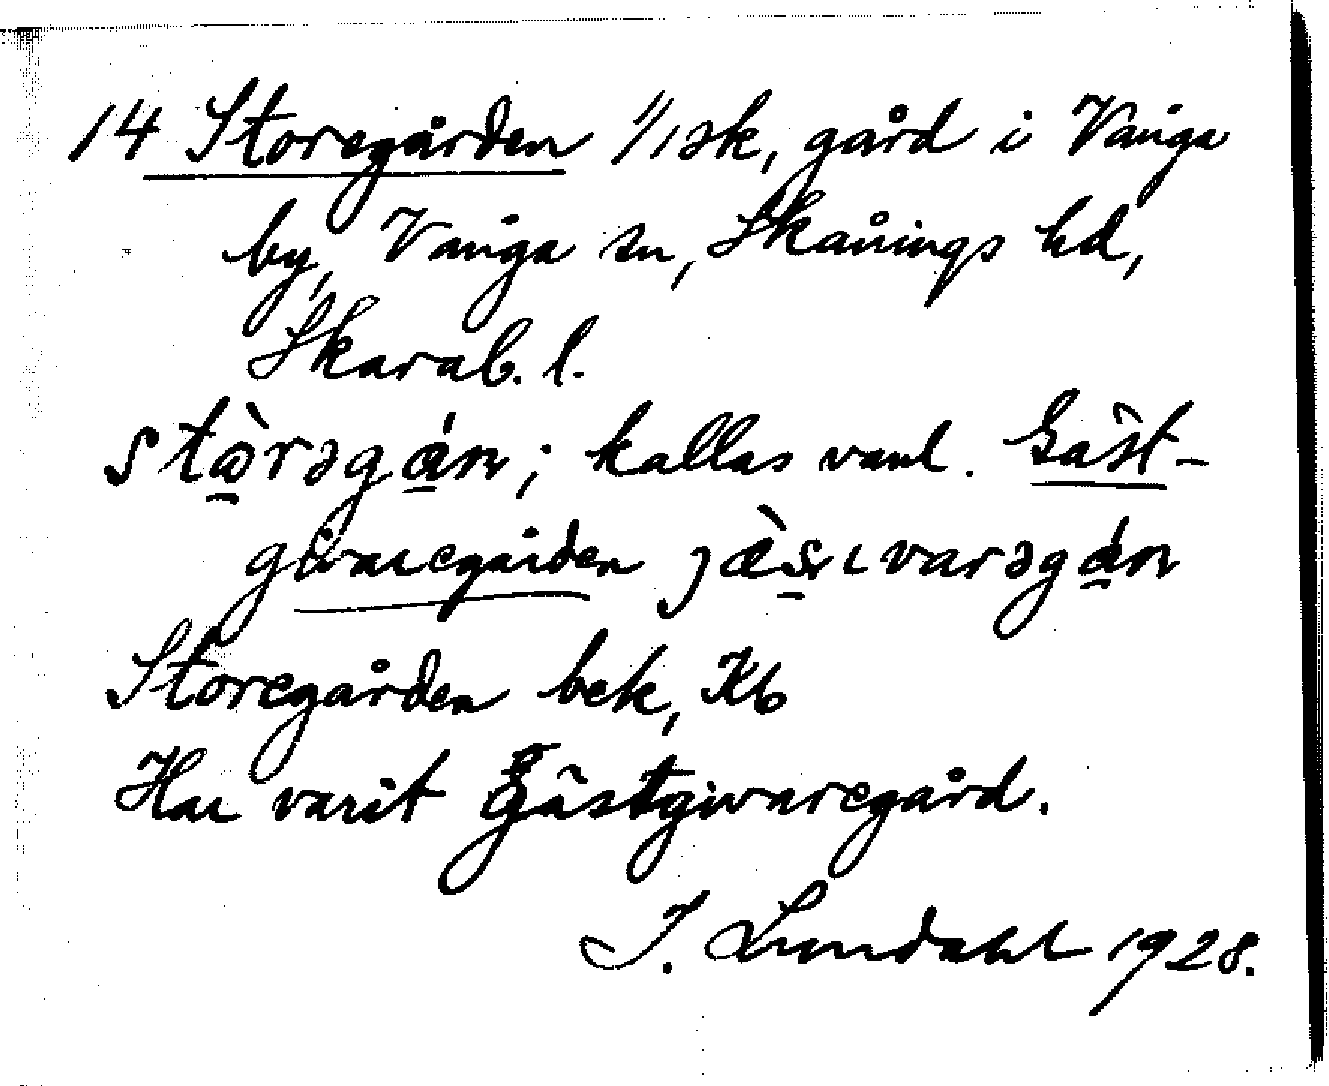 14 Storegården 1/1 sk, gård i Vånga
by, Vånga sn, Skånings hd,
Skarab. l.
stὼrəgɑ́n; kallas vanl. Gäst-
givaregården jæ̀sɩvarəgɑ́n
Storegården bek, Kb
Har varit Gästgivaregård.
I. Lundahl 1928.